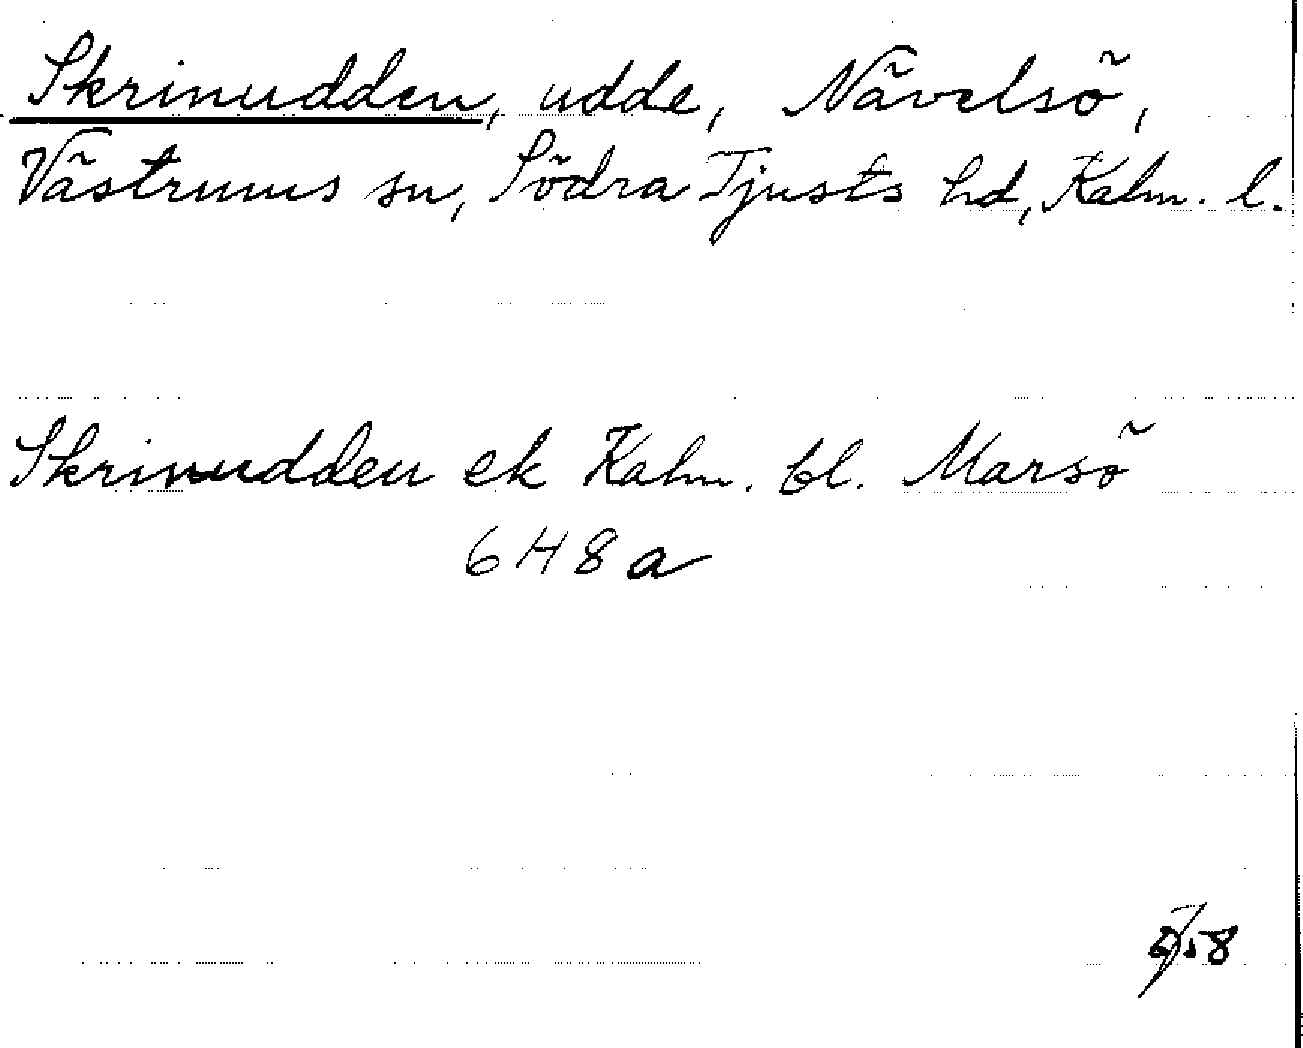 Skrinudden, udde, Nävelsö,
Västrums sn, Södra Tjusts hd, Kalm. l.
Skrinudden ek Kalm. bl. Marsö
6H8a